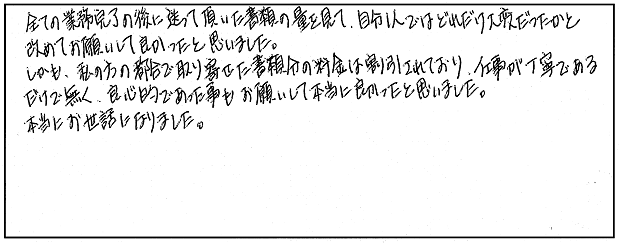 全ての業務完了の後に送って頂いた書類の量を見て、自分1人ではどれだけ大変だったかと
改めてお願いして良かったと思いました。
しかも、私の方の都合で取り寄せた書類分の料金は割引されており、仕事が丁寧である
だけで無く、良心的であった事もお願いして本当に良かったと思いました。
本当にお世話になりました。